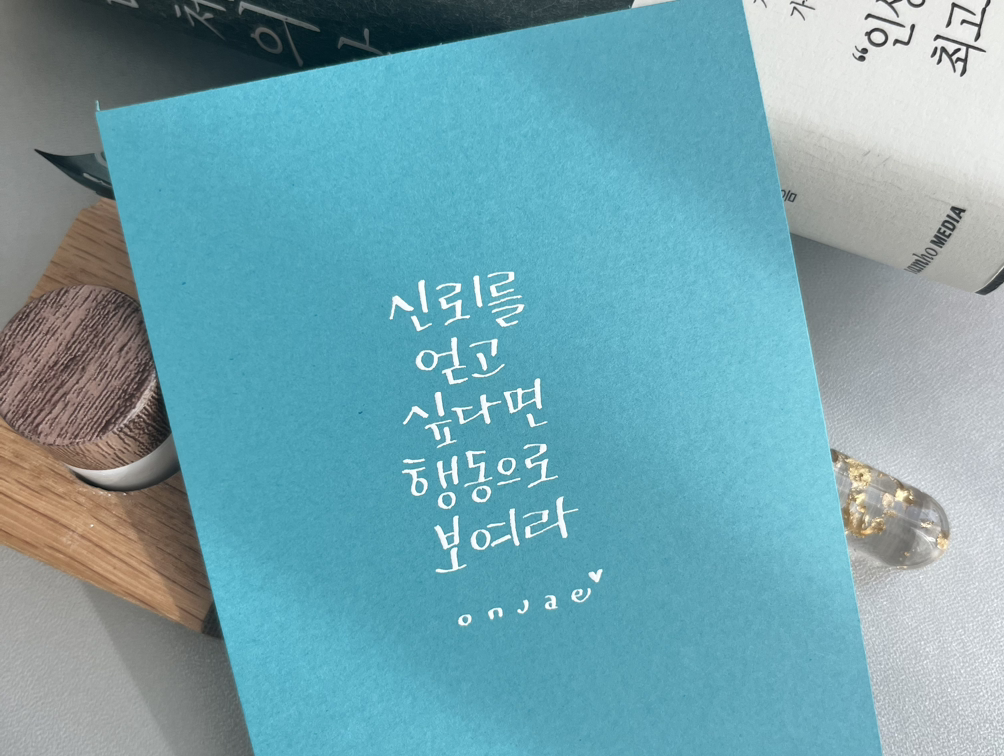 신뢰를
얻고
싶다면
행동으로
보여라
onjae
“인생
최고
MEDIA